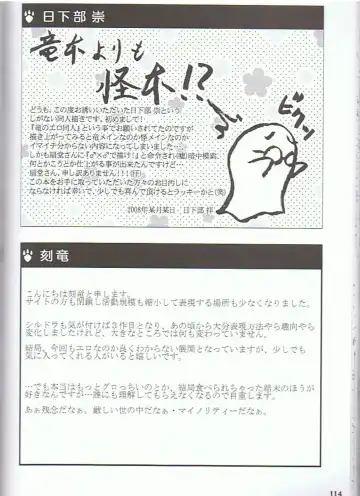 日下部 崇
竜本よりも
怪本!?
ビクッ
どうも、この度お誘いいただいた日下部 崇という
しがない同人描きです。初めまして!
『竜のエロ同人』という事でお願いされてたのですが
描き上がってみると竜メインなのか怪メインなのか
イマイチ分からない内容になってしまいました…
しかも扇堂さんに『♂×♂で描け!』と命令され(嘘)暗中模索、
何とかこうとか仕上がる事が出来たんですけど…
扇堂さん、申し訳ありません!!!(汗)
この本をお手に取っていただいた方々のお目汚しに
ならなければ幸いで、少しでも喜んで頂けるとラッキーかと(笑)
2008年某月某日・日下部 拝
刻竜
こんにちは刻竜と申します。
サイトの方も閉鎖し活動規模も縮小して表現する場所も少なくなりました。
シルドラも気が付けば3作目となり、あの頃から大分表現方法やら趣向やら
変化しましたけれど、大きなところでは何も変わっていません。
結局、今回もエロなのか良くわからない展開となっていますが、少しでも
気に入ってくれる人がいると嬉しいです。
…でも本当はもっとグロっちいのとか、結局食べられちゃった結末のほうが
好きなんですが…誰にも理解してもらえなくなるので自重します。
あぁ残念だなぁ、厳しい世の中だなぁ・マイノリティーだなぁ。
114